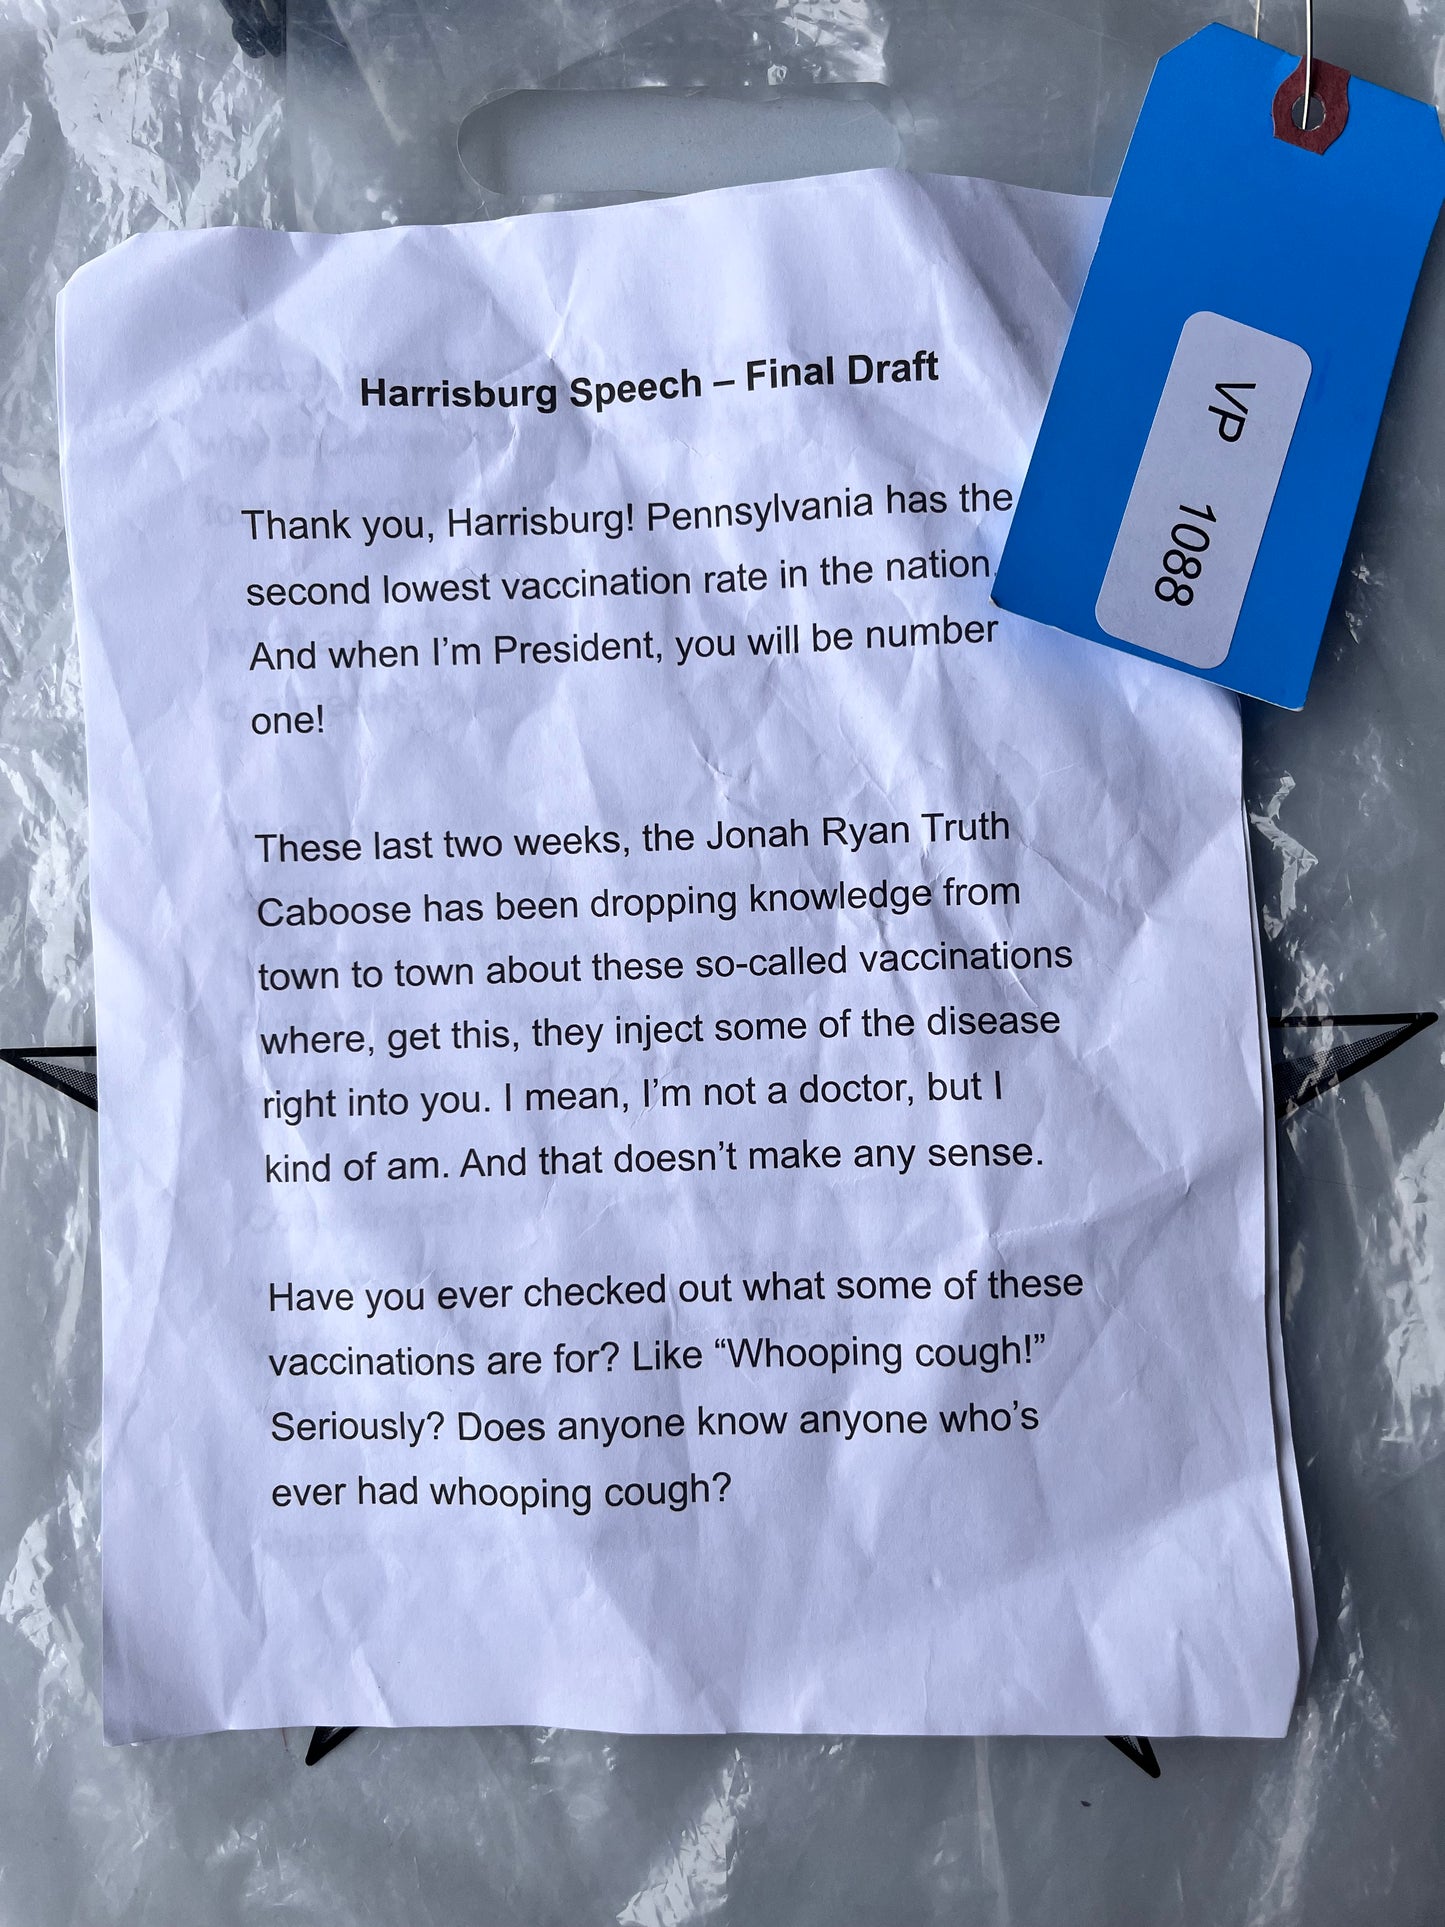 Harrisburg Speech – Final Draft
Thank you, Harrisburg! Pennsylvania has the
second lowest vaccination rate in the nation.
And when I’m President, you will be number
one!
These last two weeks, the Jonah Ryan Truth
Caboose has been dropping knowledge from
town to town about these so-called vaccinations
where, get this, they inject some of the disease
right into you. I mean, I’m not a doctor, but I
kind of am. And that doesn’t make any sense.
Have you ever checked out what some of these
vaccinations are for? Like “Whooping cough!”
Seriously? Does anyone know anyone who’s
ever had whooping cough?
VP 1088